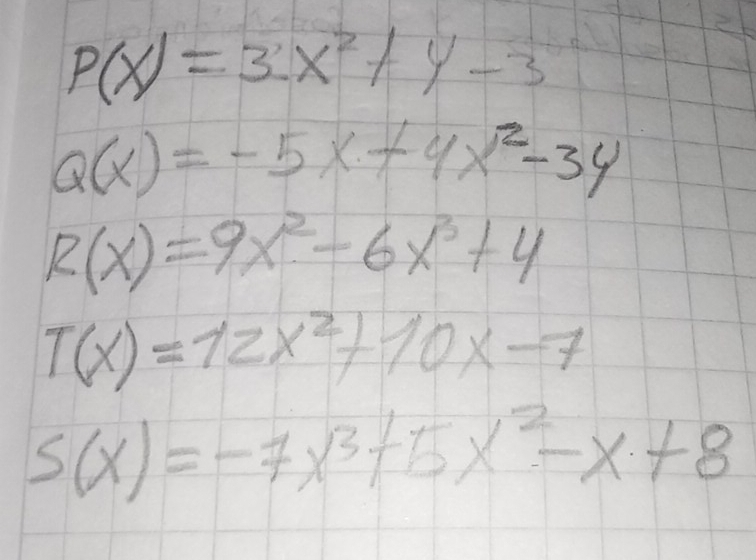 P(X) = 3x² + y - 3
Q(X) = -5x + 4x² - 3y
R(X) = 9x² - 6x³ + 4
T(X) = 12x² + 10x - 7
S(X) = -7x³ + 5x² - x + 8